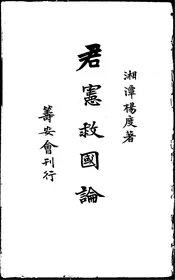 湘潭楊度著
君憲救國論
籌安會刊行